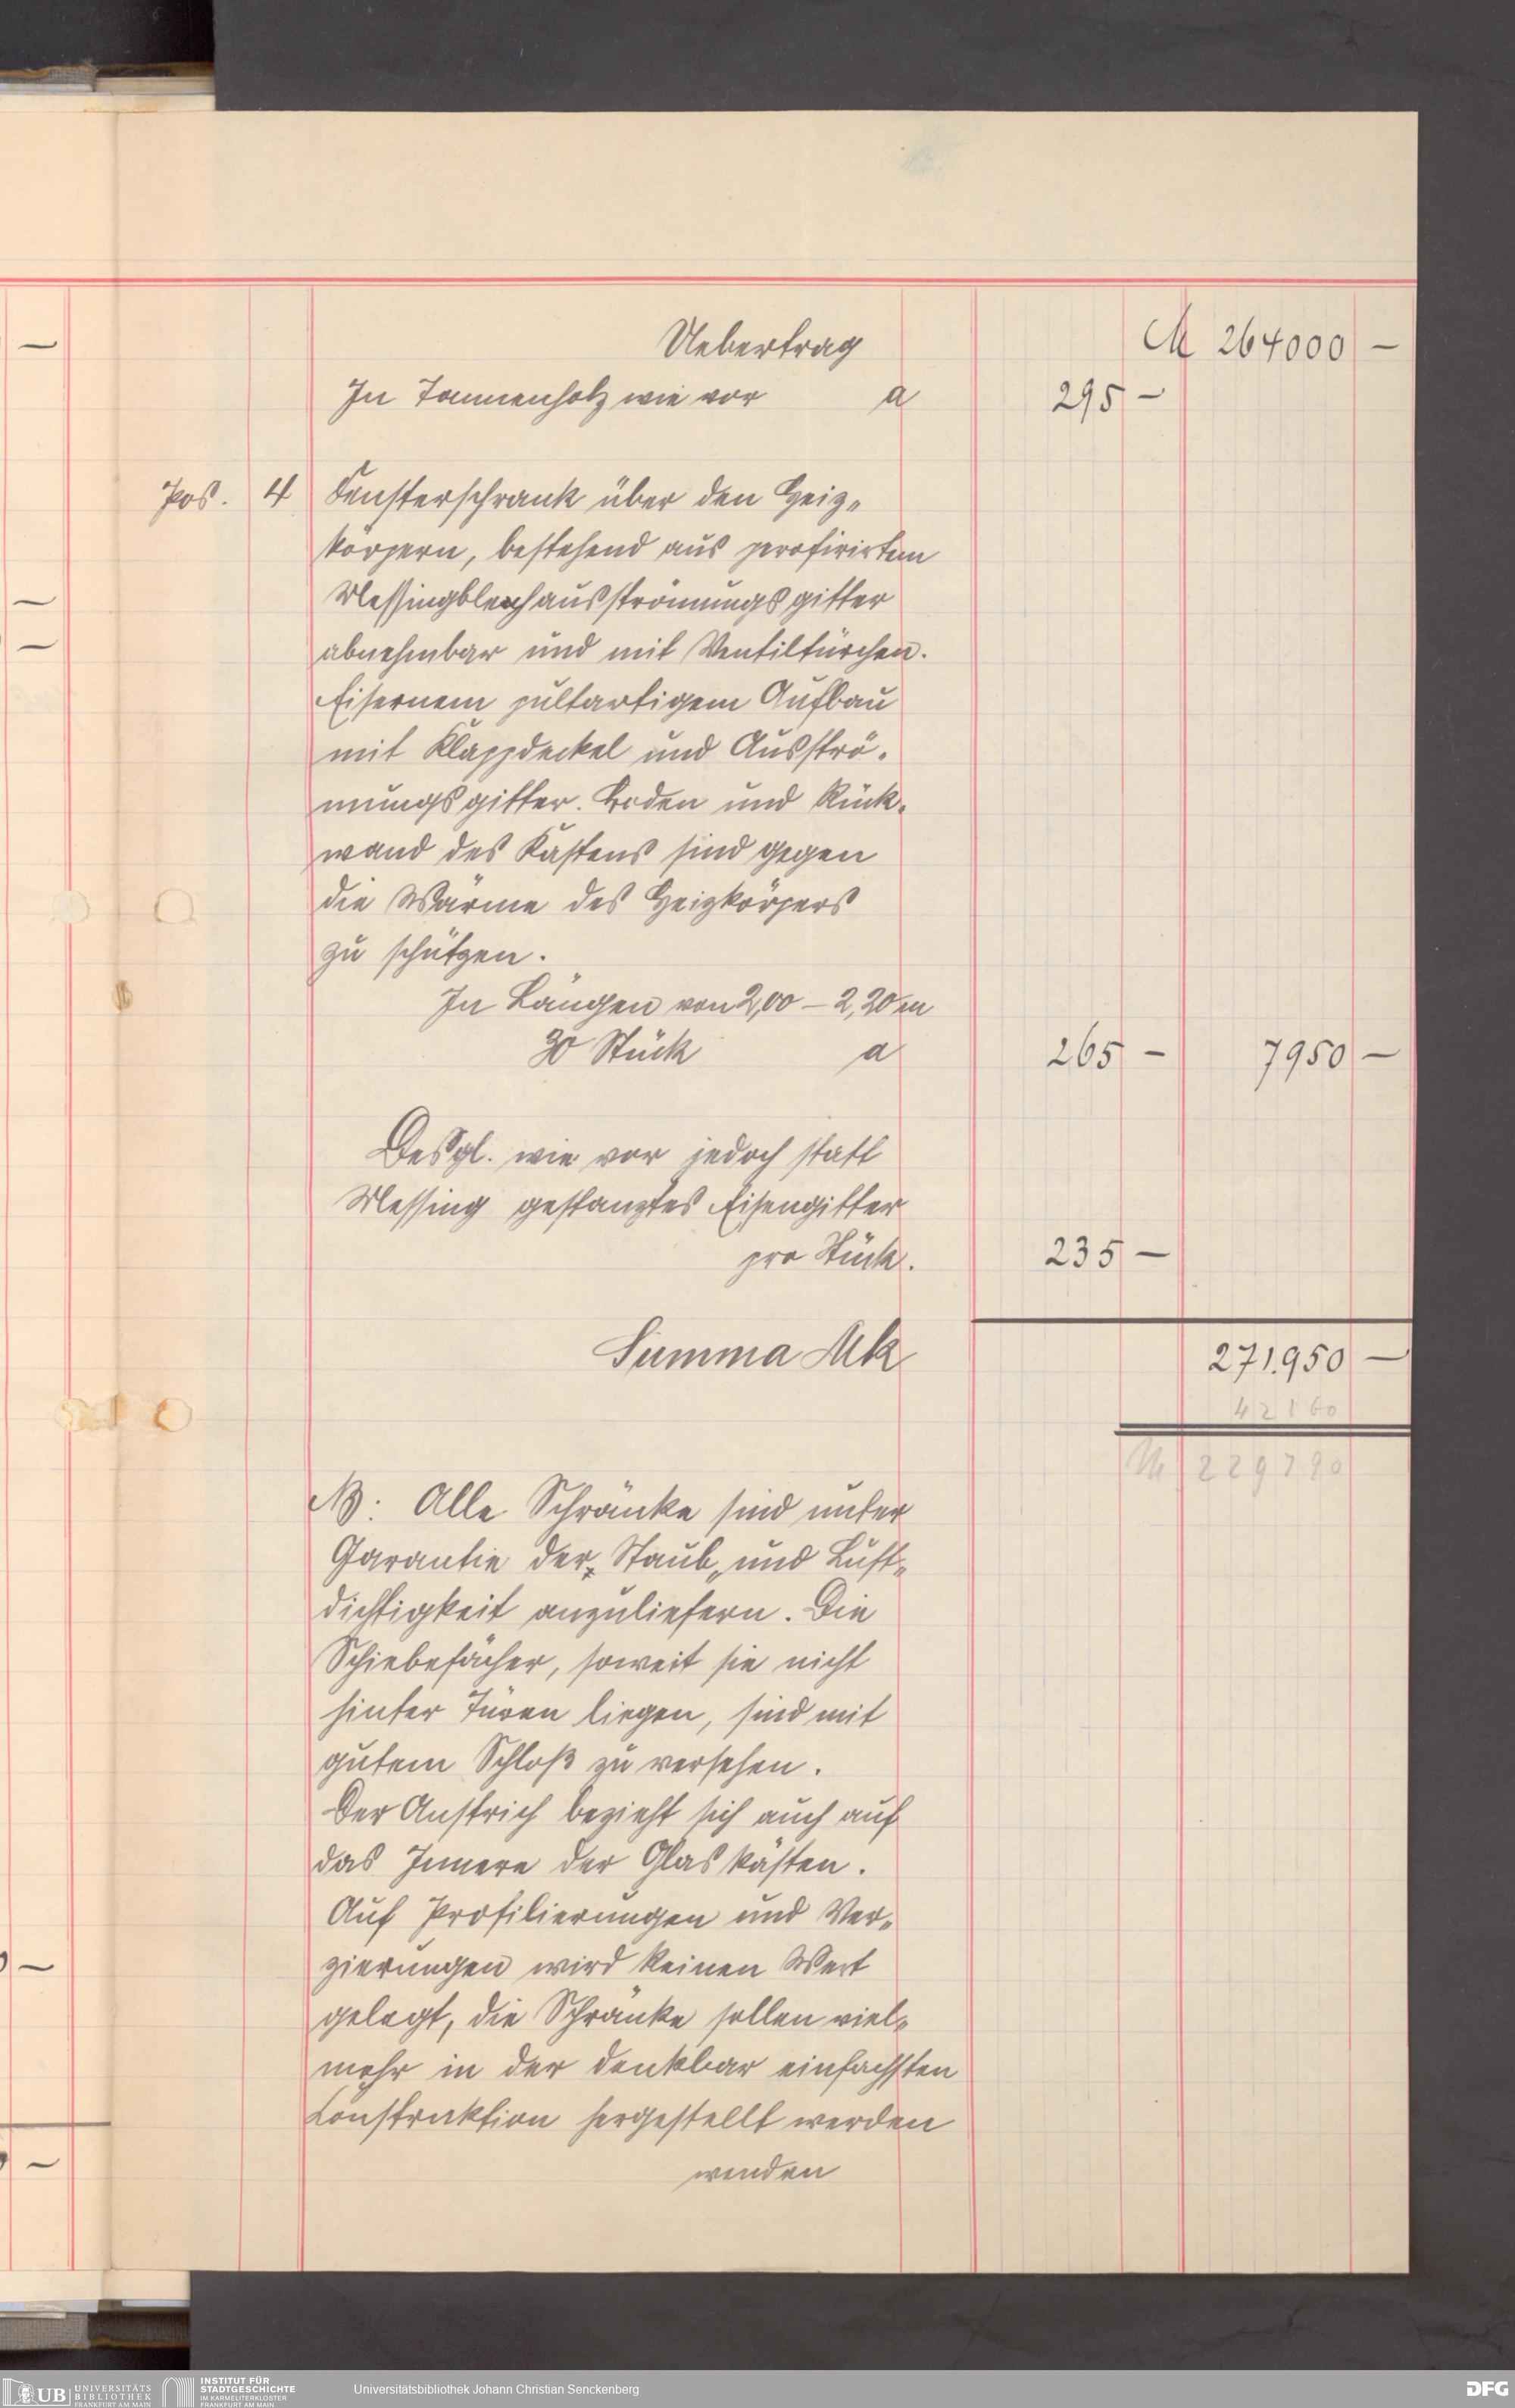 Uebertrag M 264000 —
In Tannenholz wie vor a 295 —
Pos. 4 Fensterschrank über den Heiz„
körpern, bestehend aus perofirirtem
Messingblechausströmungsgitter
abnehmbar und mit Ventiltürchen.
Eisernem pultartigem Aufbau
mit Klappdeckel und Ausströ„
mungsgitter. Boden und Rück„
wand des Kastens sind gegen
die Wärme des Heizkörpers
zu schützen.
In Längen von 2,00 – 2,20 m
30 Stück a 265 — 7950 —
Desgl. wie vor jedoch statt
Messing gestanztes Eisengitter
pro Stück. 235 —
Summa Mk 271.950 —
42160
M 229790
NB: Alle Schränke sind unter
Garantie der Staub„ und Luft„
dichtigkeit anzuliefern. Die
Schiebefächer, soweit sie nicht
hinter Türen liegen, sind mit
gutem Schloß zu versehen.
Der Anstrich bezieht sich auch auf
das Innere der Glaskästen.
Auf Profilierungen und Ver„
zierungen wird keinen Wert
gelegt, die Schränke sollen viel„
mehr in der denkbar einfachsten
Construktion hergestellt werden
wenden
UB UNIVERSITÄTS
BIBLIOTHEK
FRANKFURT AM MAIN
INSTITUT FÜR
STADTGESCHICHTE
IM KARMELITERKLOSTER
FRANKFURT AM MAIN
Universitätsbibliothek Johann Christian Senckenberg
DFG